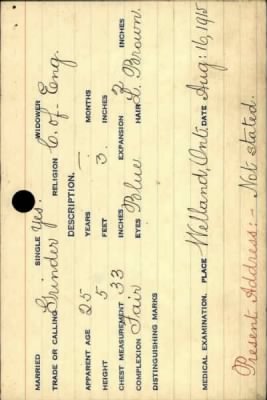 MARRIED SINGLE Yes. WIDOWER
TRADE OR CALLING Grinder RELIGION C. of Eng.
DESCRIPTION.
APPARENT AGE 25 YEARS — MONTHS
HEIGHT 5 FEET 3. INCHES
CHEST MEASUREMENT 33 INCHES EXPANSION 2 INCHES
COMPLEXION Fair EYES Blue HAIR L. Brown.
DISTINGUISHING MARKS
MEDICAL EXAMINATION. PLACE Welland, Ont. DATE Aug: 16, 1915
Present Address:- Not stated.